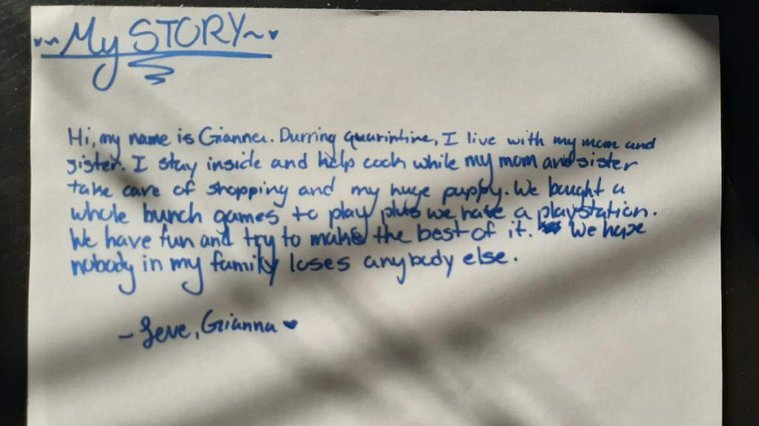 ~My STORY~
Hi, my name is Gianna. Durring quarintine, I live with my mom and
sister. I stay inside and help cook while my mom and sister
take care of shopping and my huge puppy. We bought a
whole bunch games to play plus we have a playstation.
We have fun and try to make the best of it. We hope
nobody in my family loses anybody else.
- Love, Gianna ♥